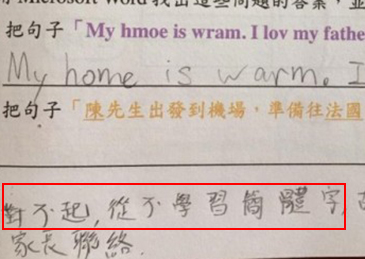 Microsoft Word 找出這些問題的答案,並
把句子「My hmoe is wram. I lov my fathe
My home is warm. I
把句子「陳先生出發到機場,準備往法國
對不起,從不學習簡體字,
家長聯絡.